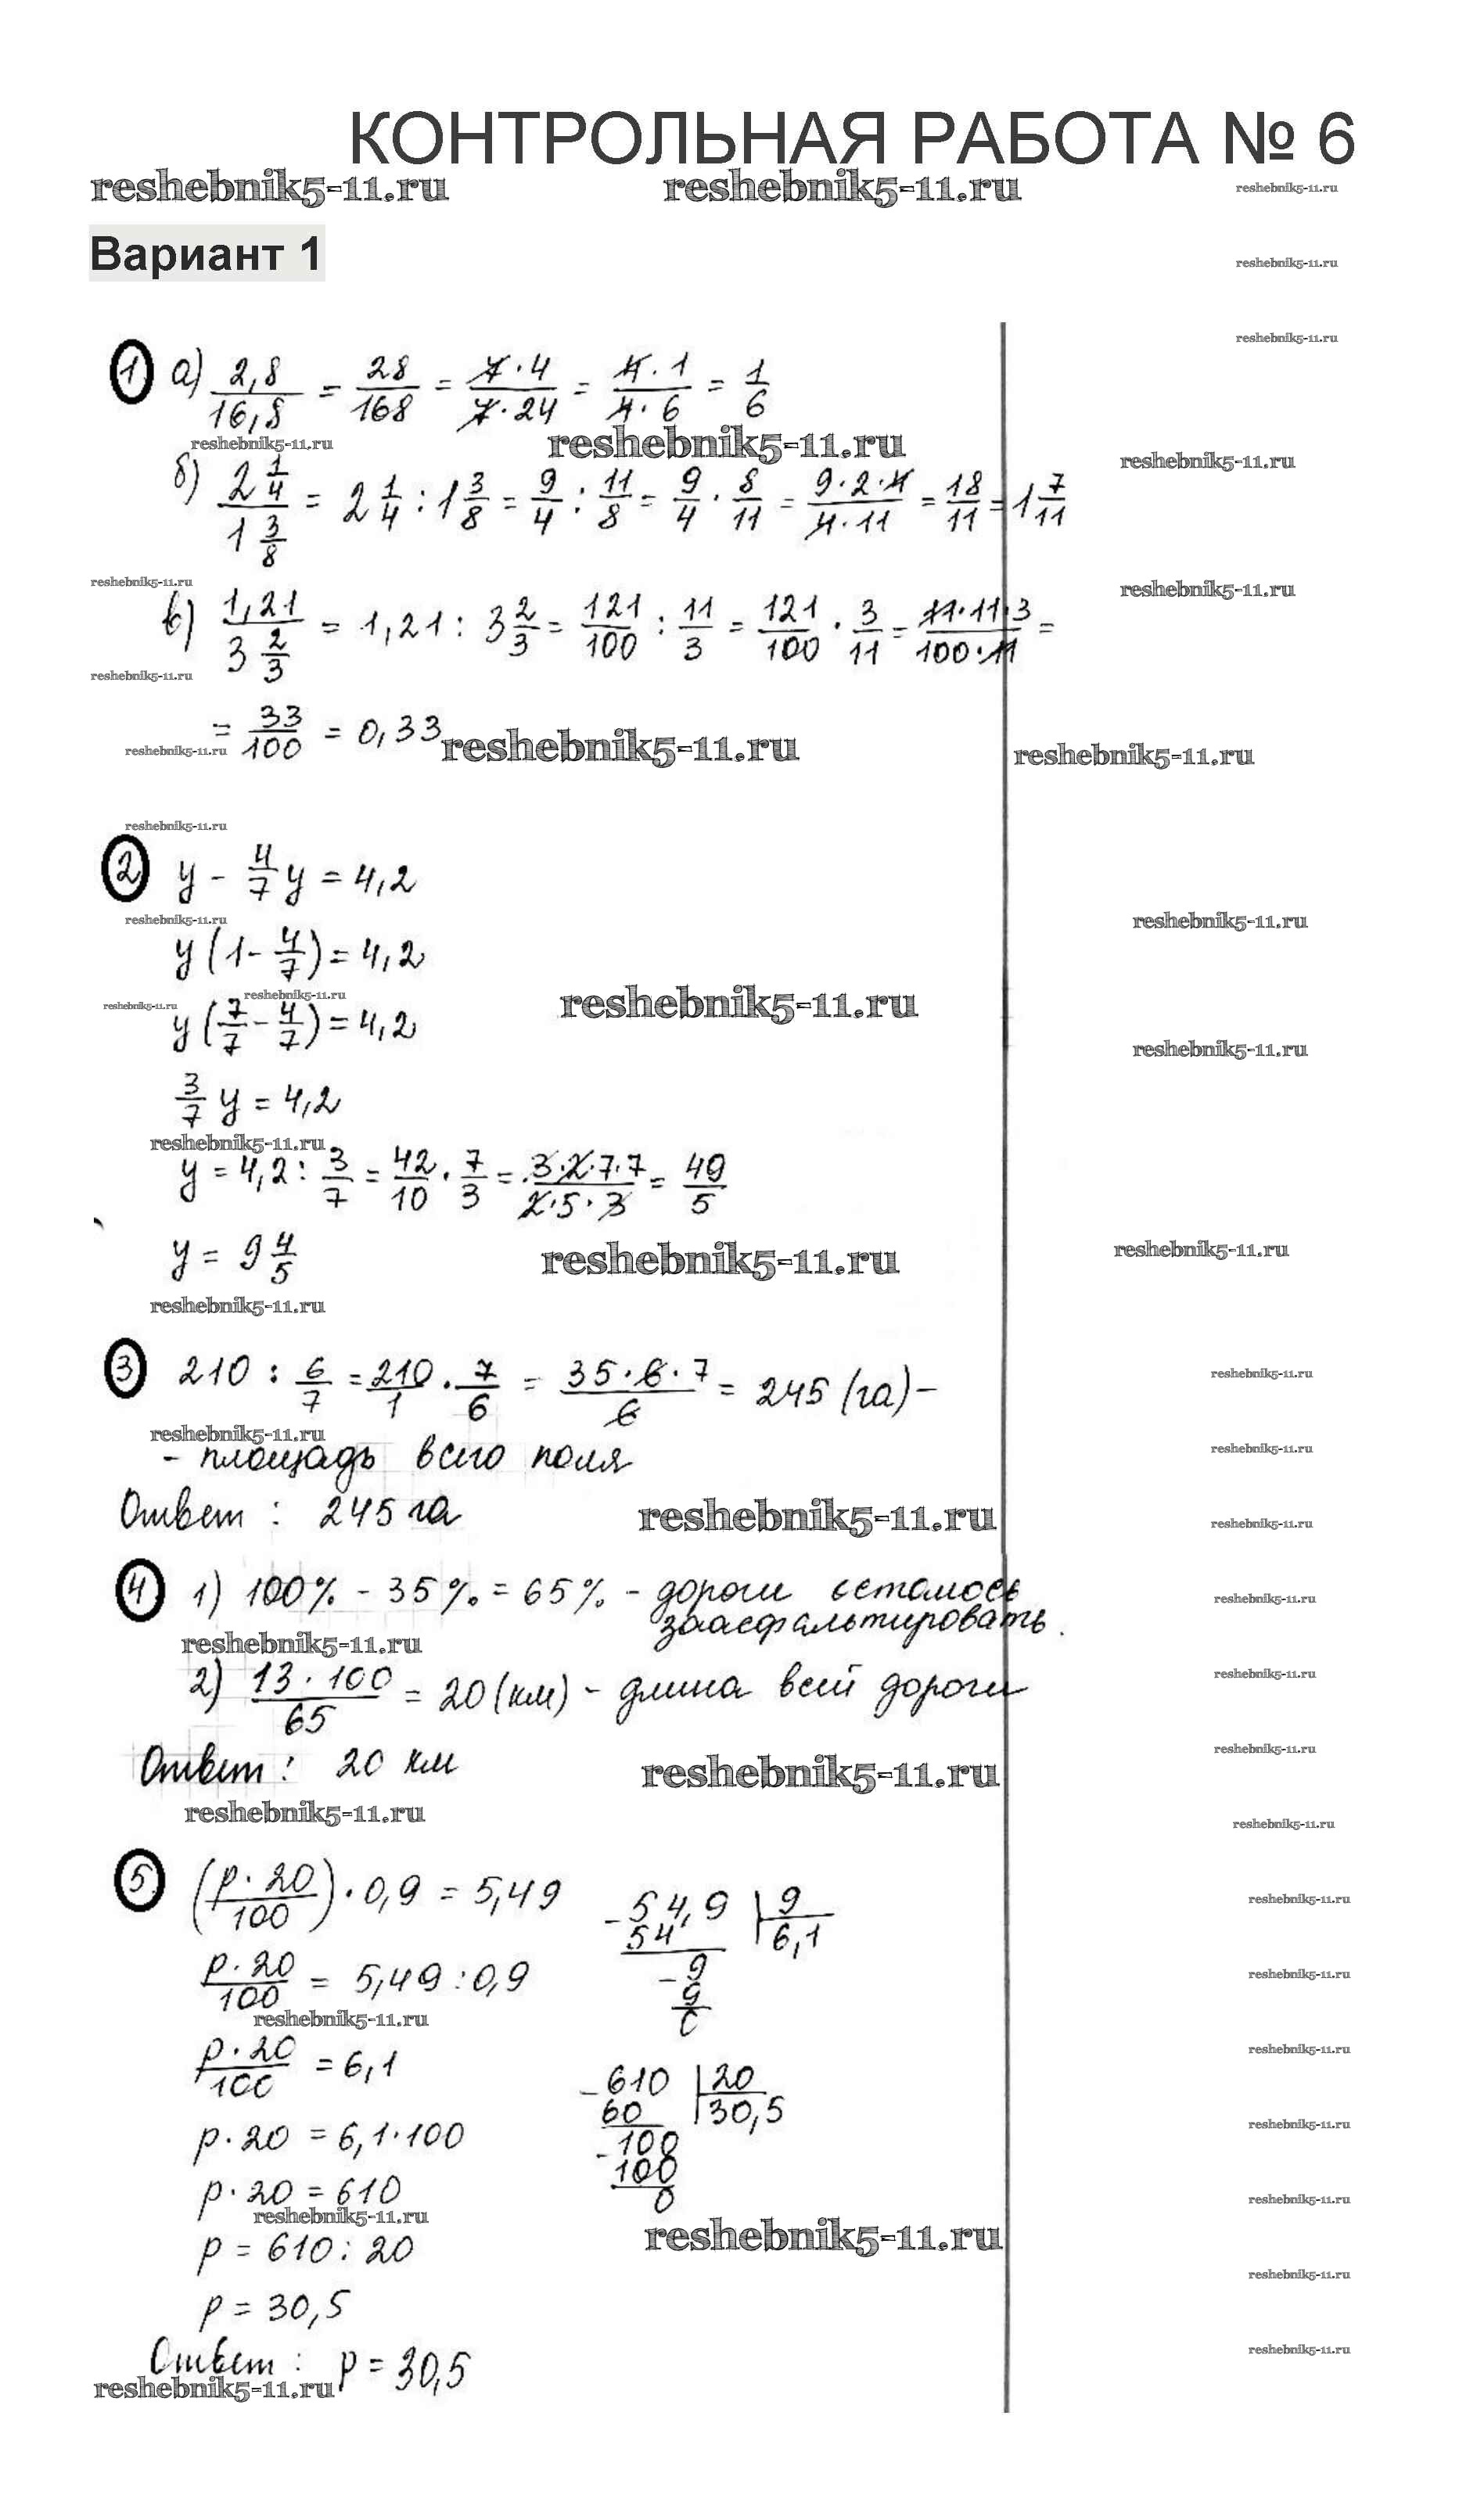 КОНТРОЛЬНАЯ РАБОТА № 6
reshebnik5-11.ru reshebnik5-11.ru reshebnik5-11.ru
Вариант 1
reshebnik5-11.ru
reshebnik5-11.ru
1 а) 2,8/16,8 = 28/168 = 7·4/7·24 = 4·1/4·6 = 1/6
reshebnik5-11.ru reshebnik5-11.ru reshebnik5-11.ru
б) 2 1/4 / 1 3/8 = 2 1/4 : 1 3/8 = 9/4 : 11/8 = 9/4 · 8/11 = 9·2·4/4·11 = 18/11 = 1 7/11
reshebnik5-11.ru reshebnik5-11.ru
в) 1,21 / 3 2/3 = 1,21 : 3 2/3 = 121/100 : 11/3 = 121/100 · 3/11 = 11·11·3/100·11 =
reshebnik5-11.ru
= 33/100 = 0,33
reshebnik5-11.ru reshebnik5-11.ru reshebnik5-11.ru
reshebnik5-11.ru
2 y - 4/7 y = 4,2
reshebnik5-11.ru reshebnik5-11.ru
y (1 - 4/7) = 4,2
reshebnik5-11.ru reshebnik5-11.ru reshebnik5-11.ru
y (7/7 - 4/7) = 4,2
reshebnik5-11.ru
3/7 y = 4,2
reshebnik5-11.ru
y = 4,2 : 3/7 = 42/10 · 7/3 = 3·2·7·7/2·5·3 = 49/5
y = 9 4/5
reshebnik5-11.ru reshebnik5-11.ru
reshebnik5-11.ru
3 210 : 6/7 = 210/1 · 7/6 = 35·6·7/6 = 245 (га) -
reshebnik5-11.ru
reshebnik5-11.ru reshebnik5-11.ru
- площадь всего поля
Ответ : 245 га
reshebnik5-11.ru reshebnik5-11.ru
4 1) 100% - 35% = 65% - дороги осталось
заасфальтировать.
reshebnik5-11.ru
reshebnik5-11.ru
2) 13·100/65 = 20 (км) - длина всей дороги
reshebnik5-11.ru
Ответ : 20 км
reshebnik5-11.ru reshebnik5-11.ru
reshebnik5-11.ru reshebnik5-11.ru
5 (p·20/100) · 0,9 = 5,49
reshebnik5-11.ru
-54,9 9
54 6,1
-9
9
0
p·20/100 = 5,49 : 0,9
reshebnik5-11.ru
reshebnik5-11.ru
p·20/100 = 6,1
reshebnik5-11.ru
-610 20
60 30,5
-100
100
0
p·20 = 6,1·100
reshebnik5-11.ru
p·20 = 610
reshebnik5-11.ru reshebnik5-11.ru
reshebnik5-11.ru
p = 610 : 20
reshebnik5-11.ru
p = 30,5
reshebnik5-11.ru
Ответ : p = 30,5
reshebnik5-11.ru